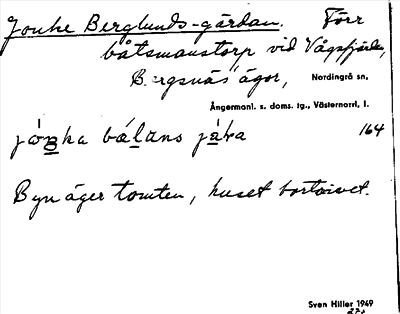 Jonke Berglunds-gårdan. Förr
båtsmanstorp vid Vågsfjärden,
Bergsnäs ägor, Nordingrå sn,
Ångermanl. s. doms. tg., Västernorrl. l.
164
Byn äger tomten, huset bortrivet.
Sven Hiller 1949